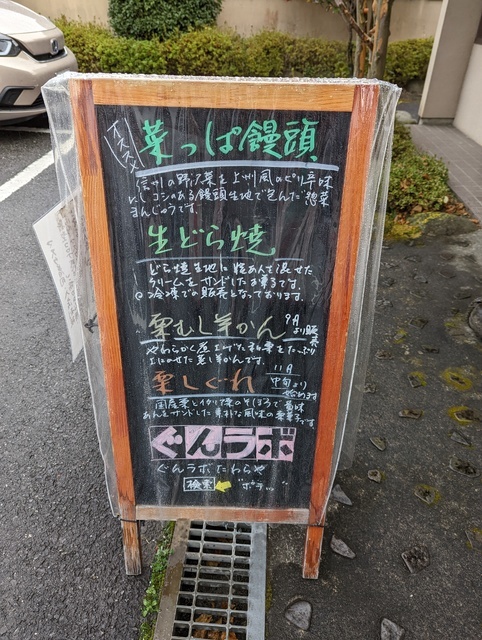 オススメ
菜っぱ饅頭
信州の野沢菜を上州風のピリ辛味
にしコシのある饅頭生地で包んだ惣菜
まんじゅうです。
生どら焼
どら焼生地に餡あんを混ぜた
クリームをサンドしたお菓子です。
冷凍での販売となっております。
栗むし羊かん
9月
より販売
やわらかく 栗をたっぷり
上にのせた蒸し羊かんです。
栗しぐれ
11月
中旬より
始めます
国産栗と のそぼろで
あんをサンドした素朴な風味の 菓子です
ぐんラボ
ぐんラボ たわらや
検索
"ポチッ"